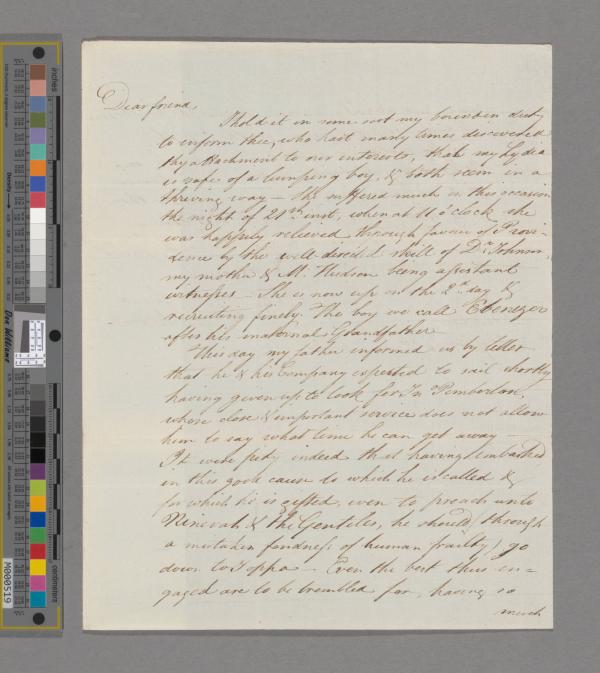 Dear friend,
I hold it in some sort my bounden duty
to inform thee, who hast many times discovered
thy attachment to our interests, that my Lydia
is safe of a lumping boy, & both seem in a
thriving way — She suffered much on this occasion
the night of 21st inst, when at 11 o'clock she
was happily relieved through favour of Provi-
dence by the well-directed skill of Dr. Johnson,
my mother & M. Hudson being assistant
witnesses — She is now up on the 2d day &
recruiting finely. The boy we call Ebenezer
after his maternal Grandfather
This day my father informed us by letter
that he & his Company expected to sail shortly
having given up to look for Jn Pemberton,
whose close & important service does not allow
him to say what time he can get away —
It were pity indeed that having embarked
in this good cause to which he is called &
for which he is gifted, even to preach unto
Ninevah & the Gentiles, he should (through
a mistaken fondness of human frailty) go
down to Joppa — Even the best thus en-
gaged are to be trembled for, having so
much
inches
centimeters
Don Williams
Density
M000519